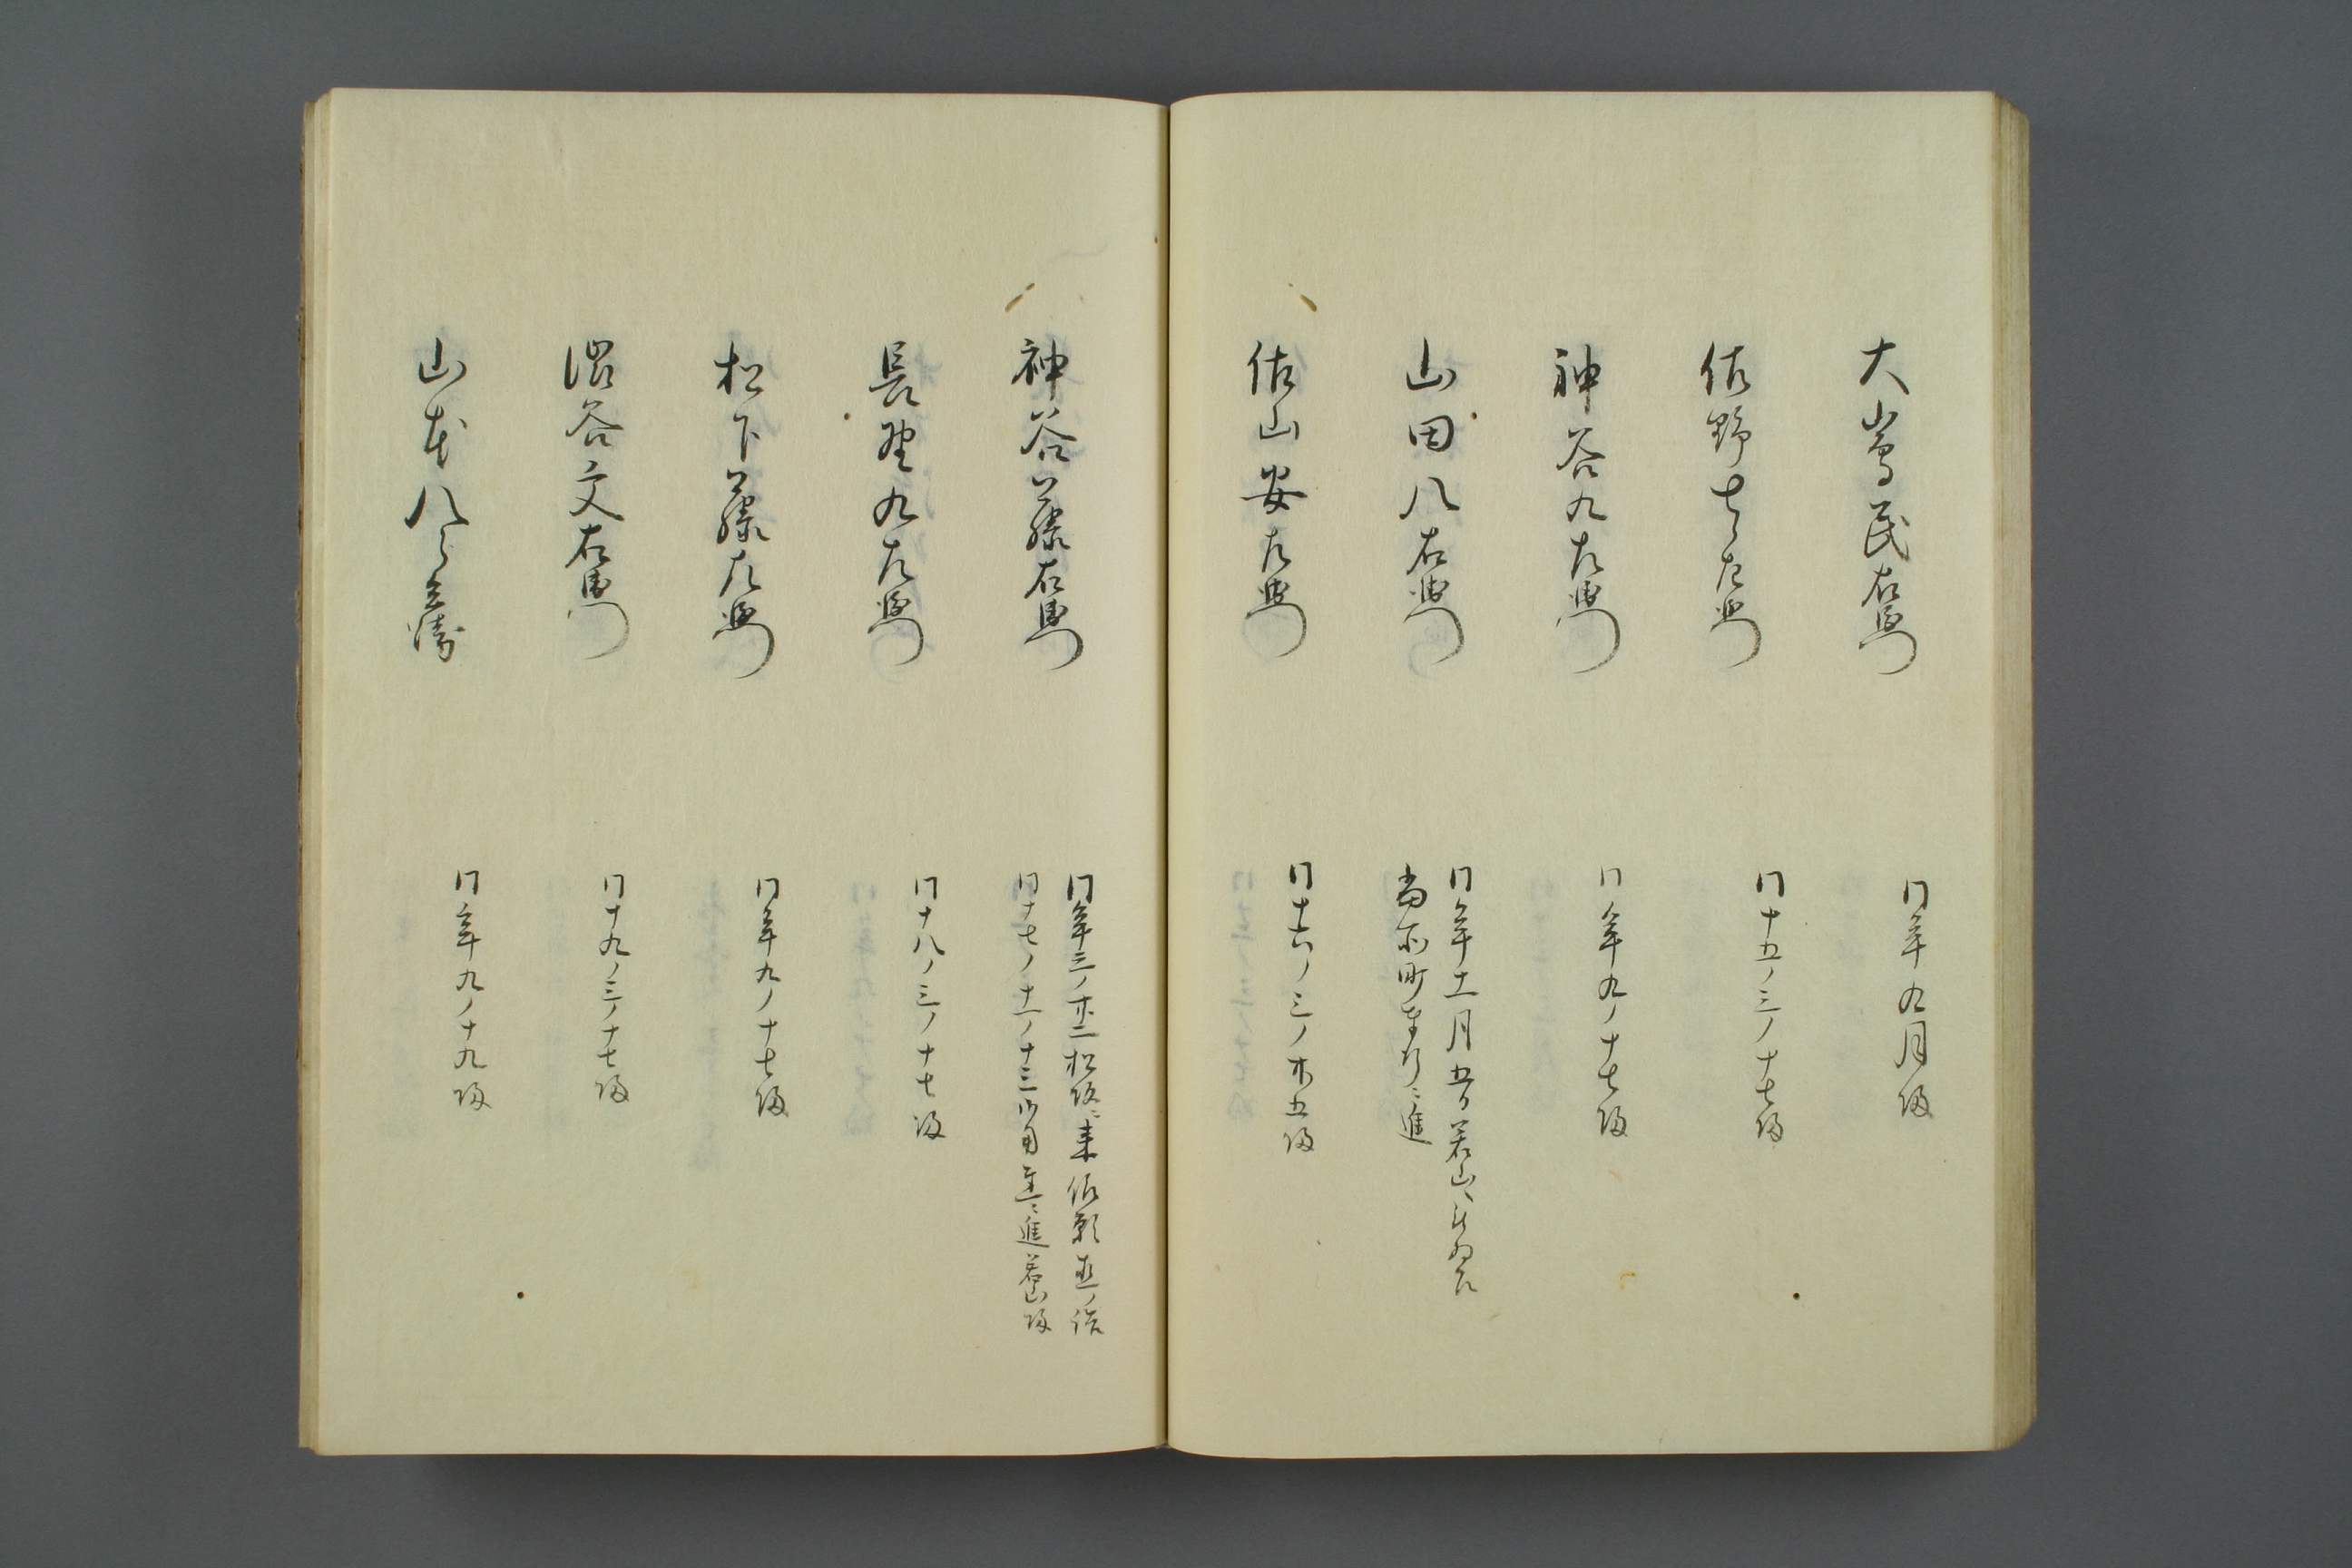 大嶌民右衛門
同年九月帰
佐野七左衛門
同十五ノ三ノ十七帰
神谷九左衛門
同年九ノ十七帰
山田八右衛門
同年十一月五日若山へ
当所町奉行ニ進
佐山安左衛門
同十六ノ三ノ廿五帰
神谷藤右衛門
同年三ノ廿二松坂ニ来
同十七ノ十一ノ十三御目ニ進若山帰
長野九左衛門
同十八ノ三ノ十七帰
松下藤左衛門
同年九ノ十七帰
渋谷文右衛門
同十九ノ三ノ十七帰
山本八兵衛
同年九ノ十九帰